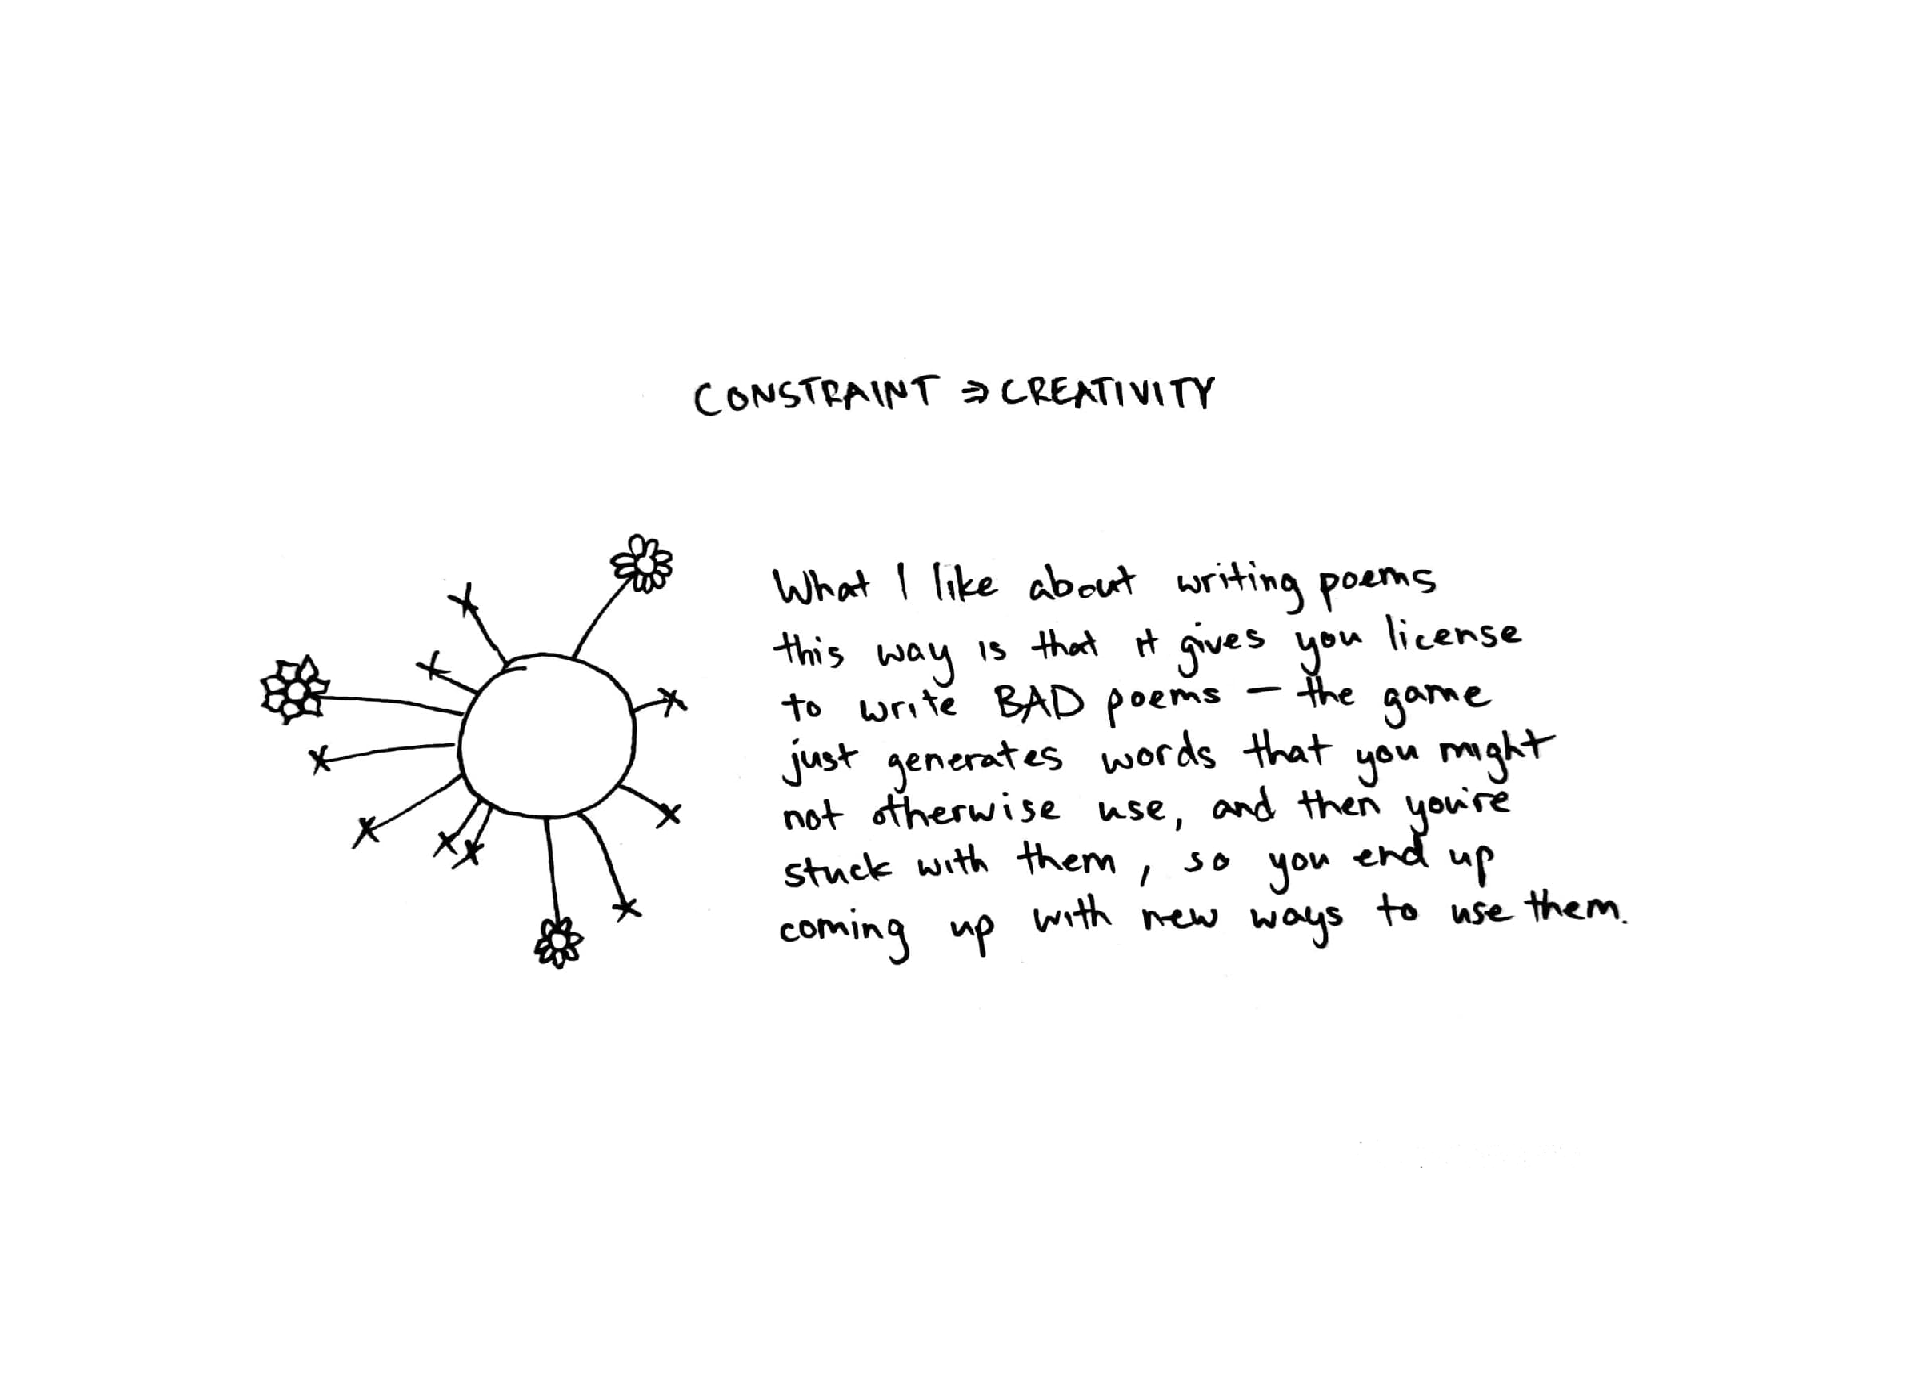 CONSTRAINT ⇒ CREATIVITY
What I like about writing poems
this way is that it gives you license
to write BAD poems — the game
just generates words that you might
not otherwise use, and then you're
stuck with them, so you end up
coming up with new ways to use them.